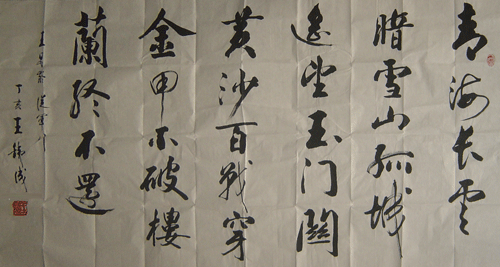 青海長雲
暗雪山孤城
遙望玉門關
黃沙百戰穿
金甲不破樓
蘭終不還
王昌齡從軍行
丁亥王